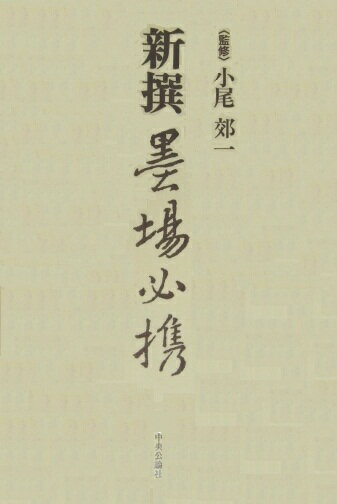 〈監修〉小尾郊一
新撰墨場必携
中央公論社